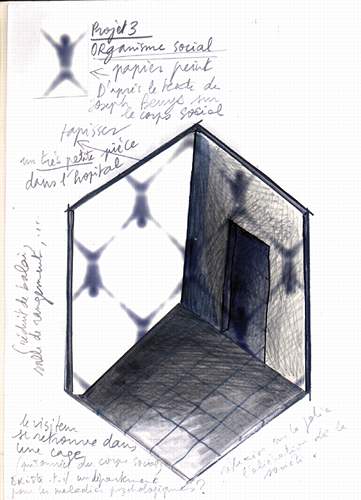 Projet 3
Organisme social
papier peint
D'après le texte de
Joseph Beuys sur
le corps social
tapisser
un très petite pièce
dans l'hôpital
(réduit de balai,
salle de rangement, ...
le visiteur
se retrouve dans
une cage
du corps social
Existe-t-il un département
pour les maladies psychologiques ?
sur la folie
l'aliénation de la
société